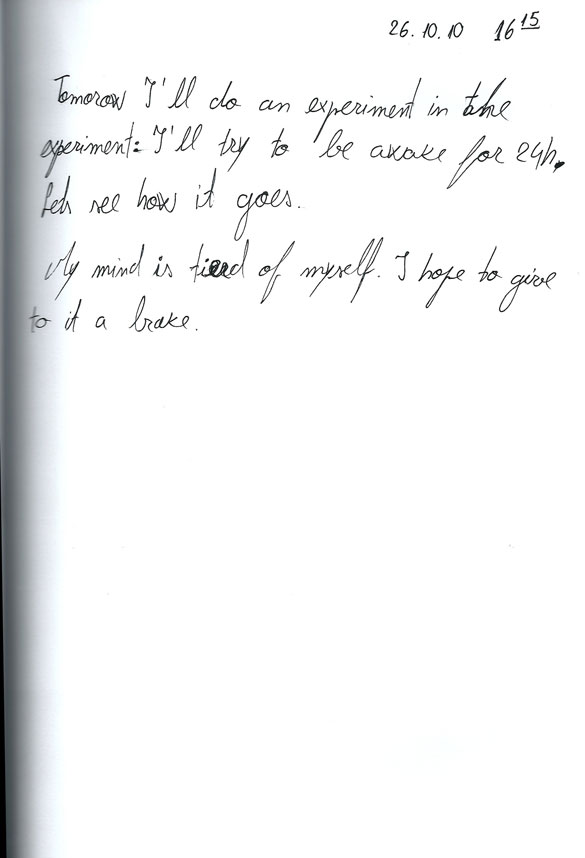 26.10.10 16 15
Tomorow I'll do an experiment in the
experiment: I'll try to be awake for 24h.
Lets see how it goes.
My mind is tired of myself. I hope to give
to it a brake.